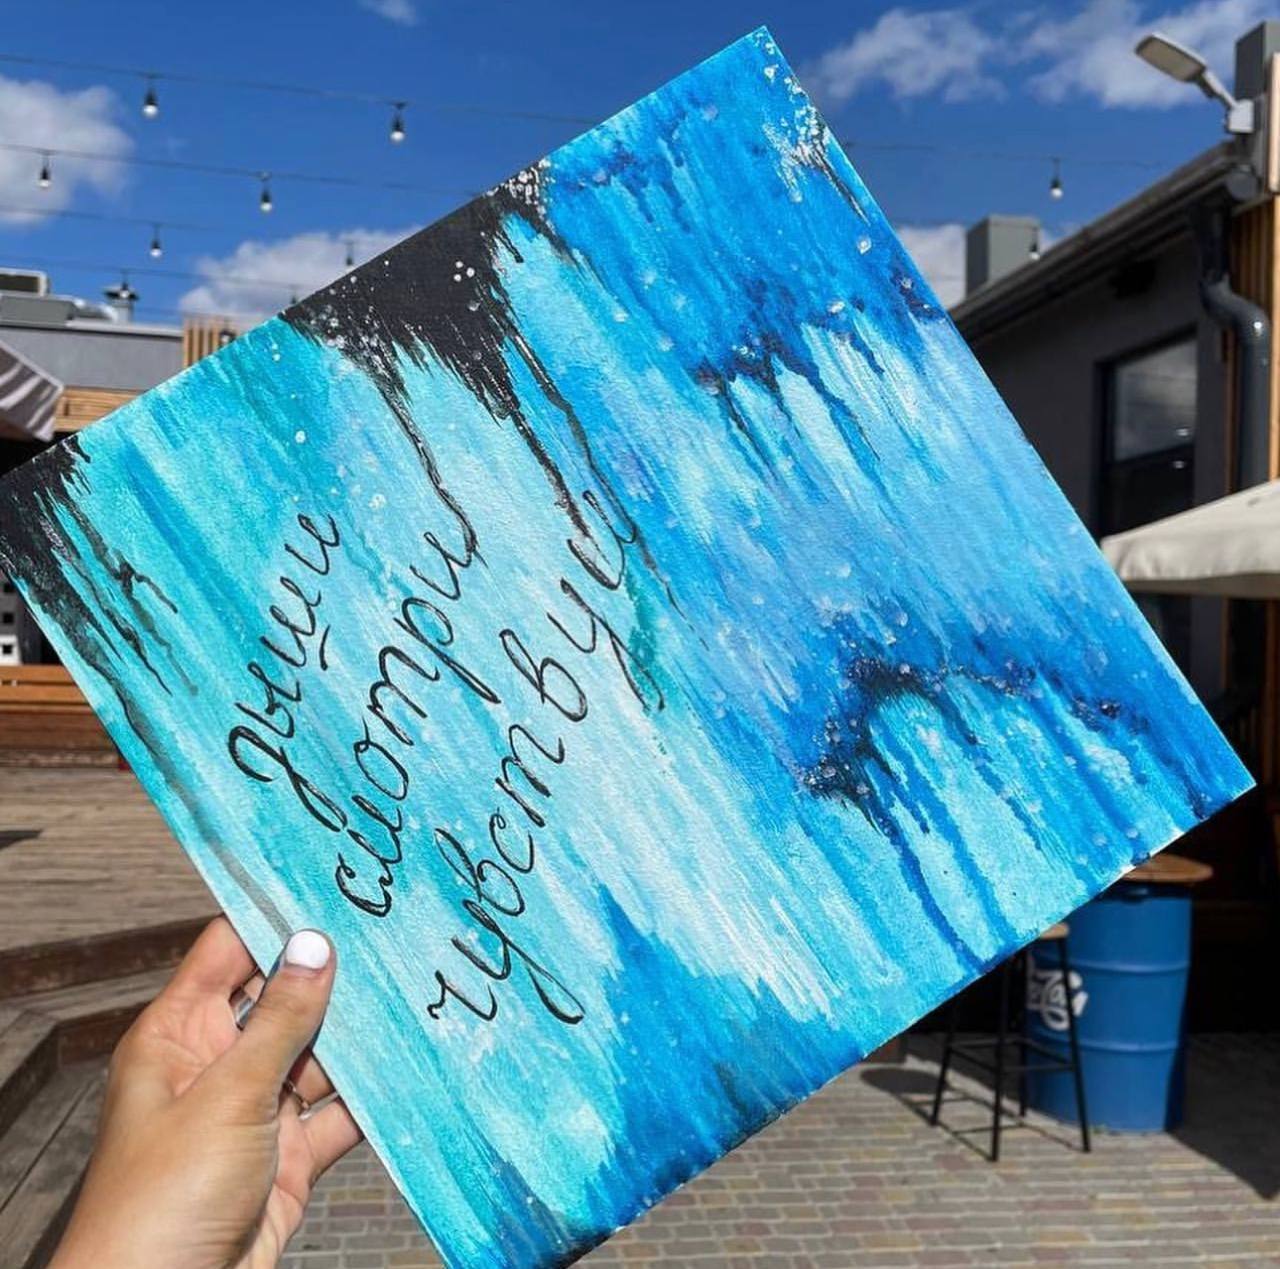 дыши
смотри
чувствуй